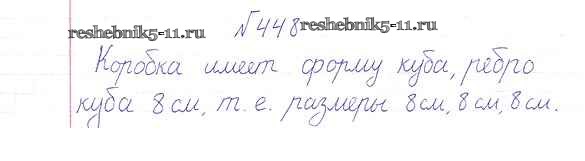 №448
reshebnik5-11.ru reshebnik5-11.ru
Коробка имеет форму куба, ребро
куба 8 см, т. е. размеры 8 см, 8 см, 8 см.